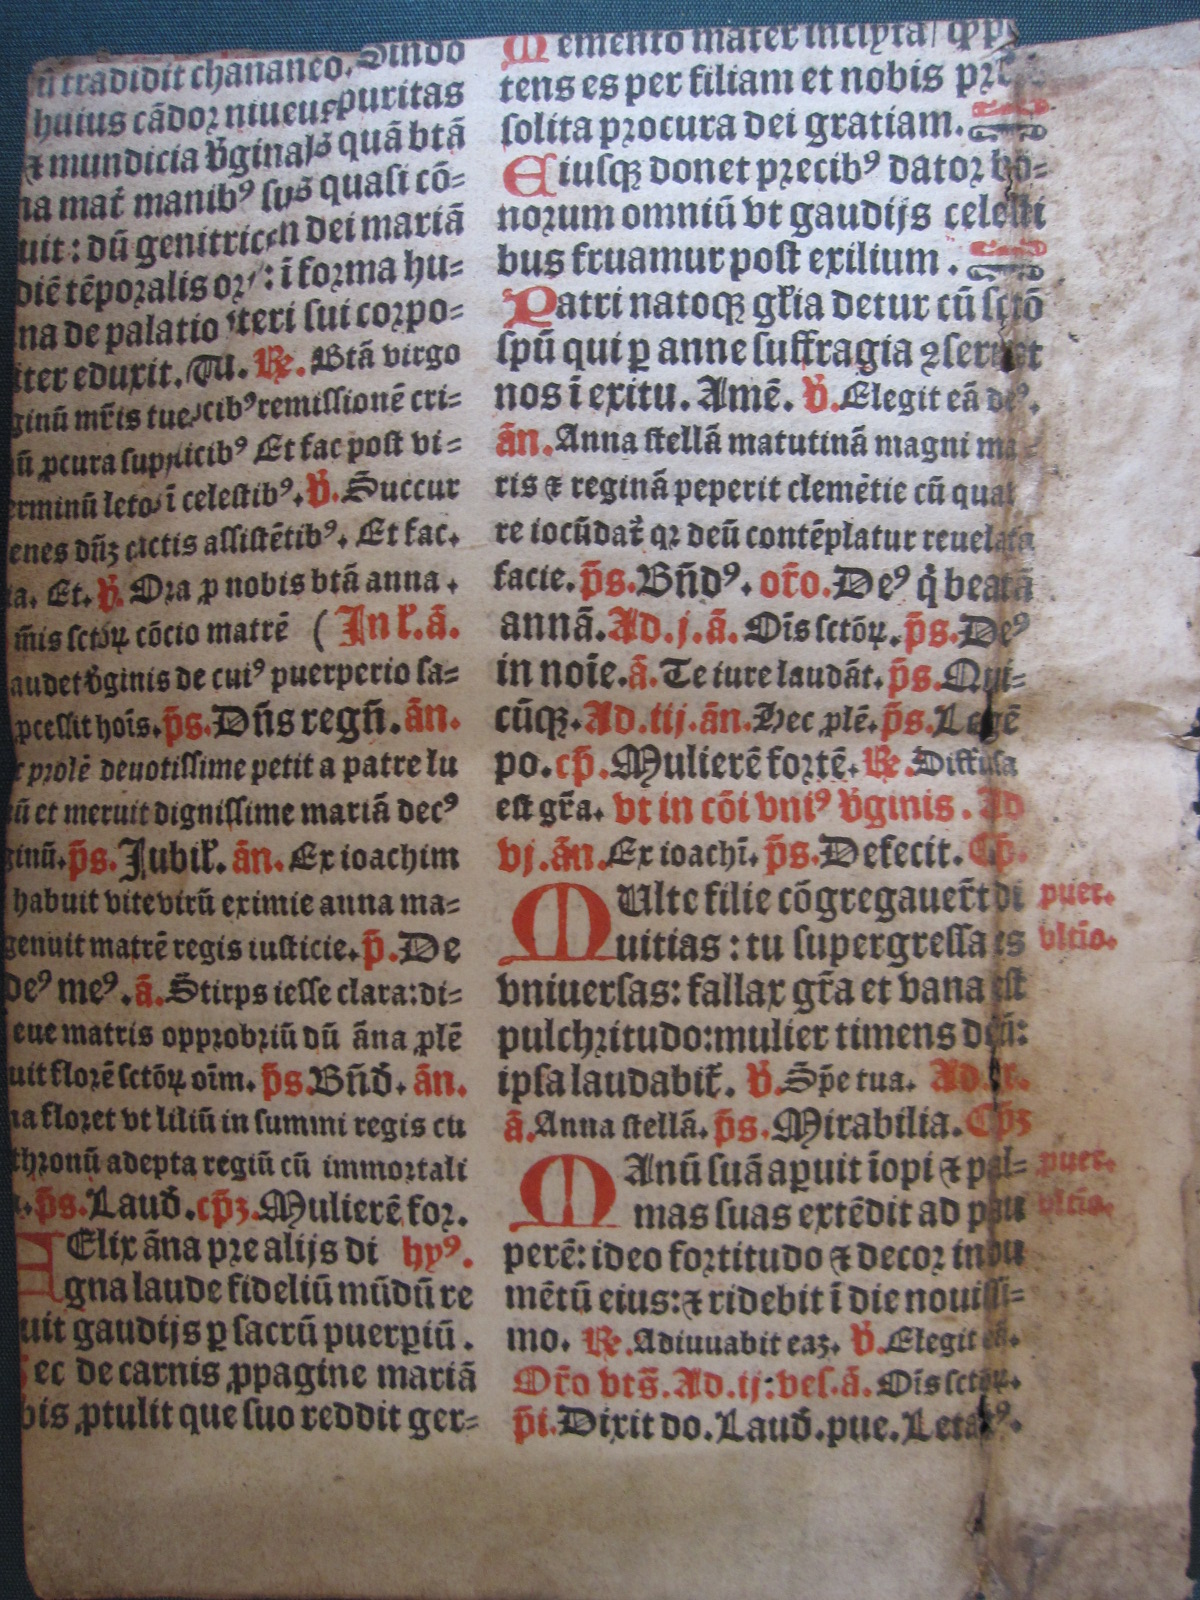 tradidit chananeo. Sindo
huius cādoꝛ niueus puritas
⁊ mundicia v̄ginal' quā btā
na mat̄ manibꝰ suis quasi cō⸗
uit : dū genitricen dei mariā
diē tēpoꝛalis : ī foꝛma hu⸗
na de palatio vteri sui coꝛpo⸗
iter eduxit. Tu. ℞. Btā virgo
ginū mr̄is tue cibꝰ remissionē cri⸗
ū ꝓcura supplicibꝰ Et fac post vi⸗
erminū leto ī celestibꝰ. v̄. Succur
enes dn̄ꝫ cūctis assistētibꝰ. Et fac.
ia. Et. v̄. Oꝛa ꝓ nobis btā anna.
m̄is sctoꝝ cōcio matrē ( In ł. ā.
audet v̄ginis de cuiꝰ puerperio sa⸗
ꝓcessit hoīs. p̄s. Dn̄s regn̄. ān.
pꝛolē deuotissime petit a patre lu
ū et meruit dignissime mariā decꝰ
ginū. p̄s. Jubił. ān. Ex ioachim
habuit vite virū eximie anna ma⸗
genuit matrē regis iusticie. p̄. De
deꝰ meꝰ. ā. Stirps iesse clara: di⸗
eue matris oppꝛobꝛiū dū āna ꝓlē
uit floꝛē sctōꝝ oīm. p̄s. Bn̄d̄. ān.
na floꝛet vt liliū in summi regis cu
thꝛonū adepta regiū cū immoꝛtali
. p̄s. Laud̄. cp̄ꝫ. Mulierē foꝛ.
Elix āna pꝛe alijs di hyꝰ.
gna laude fideliū mūdū re
uit gaudijs ꝑ sacrū puerꝑiū.
ec de carnis ꝓpagine mariā
bis ꝓtulit que suo reddit ger⸗
Memento mater inclyta
tens es per filiam et nobis
solita pꝛocura dei gratiam.
Eiusqꝫ donet pꝛecibꝰ datoꝛ bo⸗
noꝛum omniū vt gaudijs celesti
bus fruamur post exilium.
Patri natoqꝫ gl̄ia detur cū sctō
spū qui ꝑ anne suffragia ꝯseruet
nos ī exitu. Amē. v̄. Elegit eā deꝰ.
ān. Anna stellā matutinā magni ma
ris ⁊ reginā peperit clemētie cū qua
re iocūdat̄ qꝛ deū contēplatur reuelata
facie. p̄s. Bn̄dꝰ. or̄o. Deꝰ q̇ beatā
annā. Ad. j. ā. Oīs sctōꝝ. p̄s. Deꝰ
in noīe. ā. Te iure laudāt. p̄s. Qui⸗
cūqꝫ. Ad. iij. ān. Hec ꝓlē. p̄s. Legē
po. cp̄. Mulierē foꝛtē. ℞. Diffusa
est gr̄a. vt in cōi vniꝰ v̄ginis. Ad
vj. ān. Ex ioachī. p̄s. Defecit. Cp̄.
MUlte filie cōgregauer̄t di puer.
uitias : tu supergressa es vltīo.
vniuersas: fallax gr̄a et vana est
pulchꝛitudo: mulier timens deū:
ipsa laudabił. v̄. Sp̄e tua. Ad. ix.
ā. Anna stellā. p̄s. Mirabilia. Cp̄ꝫ
MAnū suā aꝑuit īopi ⁊ pal⸗ puer.
mas suas extēdit ad pau vltīo.
perē: ideo foꝛtitudo ⁊ decoꝛ indu
mētū eius: ⁊ ridebit ī die nouissi⸗
mo. ℞. Adiuuabit eaꝫ. v̄. Elegit eā.
Or̄o vts̄. Ad. ij: ves. ā. Oīs sctōꝝ.
p̄i. Dixit do. Laud̄. pue. Letatꝰ.